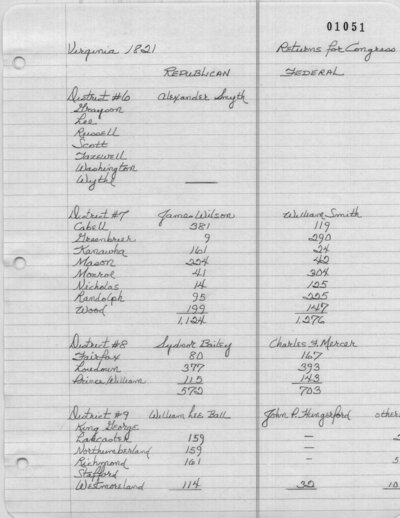 01051
Virginia 1821 Returns for Congress
REPUBLICAN FEDERAL
District #6 Alexander Smyth
Grayson
Lee
Russell
Scott
Tazewell
Washington
Wythe
District #7 James Wilson William Smith
Cabell 381 119
Greenbrier 9 290
Kanawha 161 24
Mason 224 42
Monroe 41 304
Nicholas 14 125
Randolph 95 225
Wood 199 147
1,124 1,276
District #8 Sydnor Bailey Charles F. Mercer
Fairfax 80 167
Loudown 377 393
Prince William 115 143
572 703
District #9 William Lee Ball John P. Hungerford others
King George
Lancaster 159 —
Northumberland 159 —
Richmond 161 — 5
Stafford
Westmoreland 114 30 10